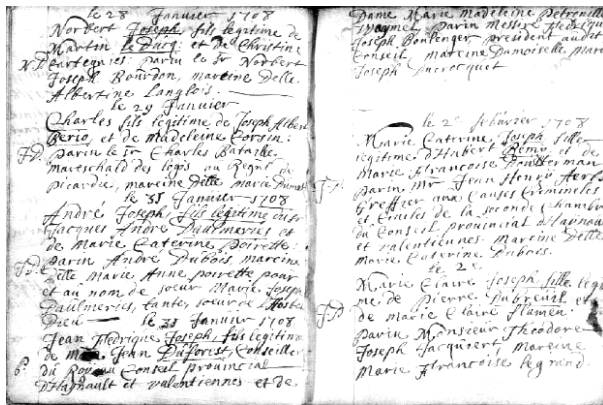 le 28 Janvier 1708
Norbert Joseph fils legitime de
Martin le Ducq: et de Christine
Cartegnies: parin le Sr Norbert
Joseph Bourdon, mareine Delle
Albertine Langlois.
le 29 Janvier
Charles fils legitime de Joseph Albert
Berio, et de Madeleine Corsin:
parin le Sr Charles Bataille
mareschald des logis au Regnt de
picardie, mareine Delle marie
le 31 Janvier 1708
André Joseph fils legitime du Sr
Jacques André Daulmeries et
de Marie Caterine poirette:
parin André Dubois mareine
Delle Marie Anne poirette pour
et au nom de soeur Marie Joseph
Daulmeries, tante, soeur de l'Hostel
Dieu le 31 Janvier 1708
Jean fredrique Joseph fils legitime
de Jean Duforist Conseiller
du Roy au Conseil provincial
d'Haynault et valentiennes et de
Dame Marie Madeleine Petronille
parin Messire
Joseph Boulenger president audit
Conseil mareine Damoiselle Marie
Joseph Ducrocquet
le 2e febvrier 1708
Marie Caterine Joseph fille
legitime d'Hubert Remy et de
Marie françoise
parin Mr Jean Henry
Greffier aux Causes Crimineles
et Civiles de la seconde Chambre
du Conseil provincial d'Haynau
et valentiennes Mareine Delle
Marie Caterine Dubois.
le 2e
Marie Claire Joseph fille legiti
me de Pierre Dubreuil et
de Marie Claire flamen.
parin Monsieur Theodore
Joseph Jacquiert Mareine
Marie françoise legrand.